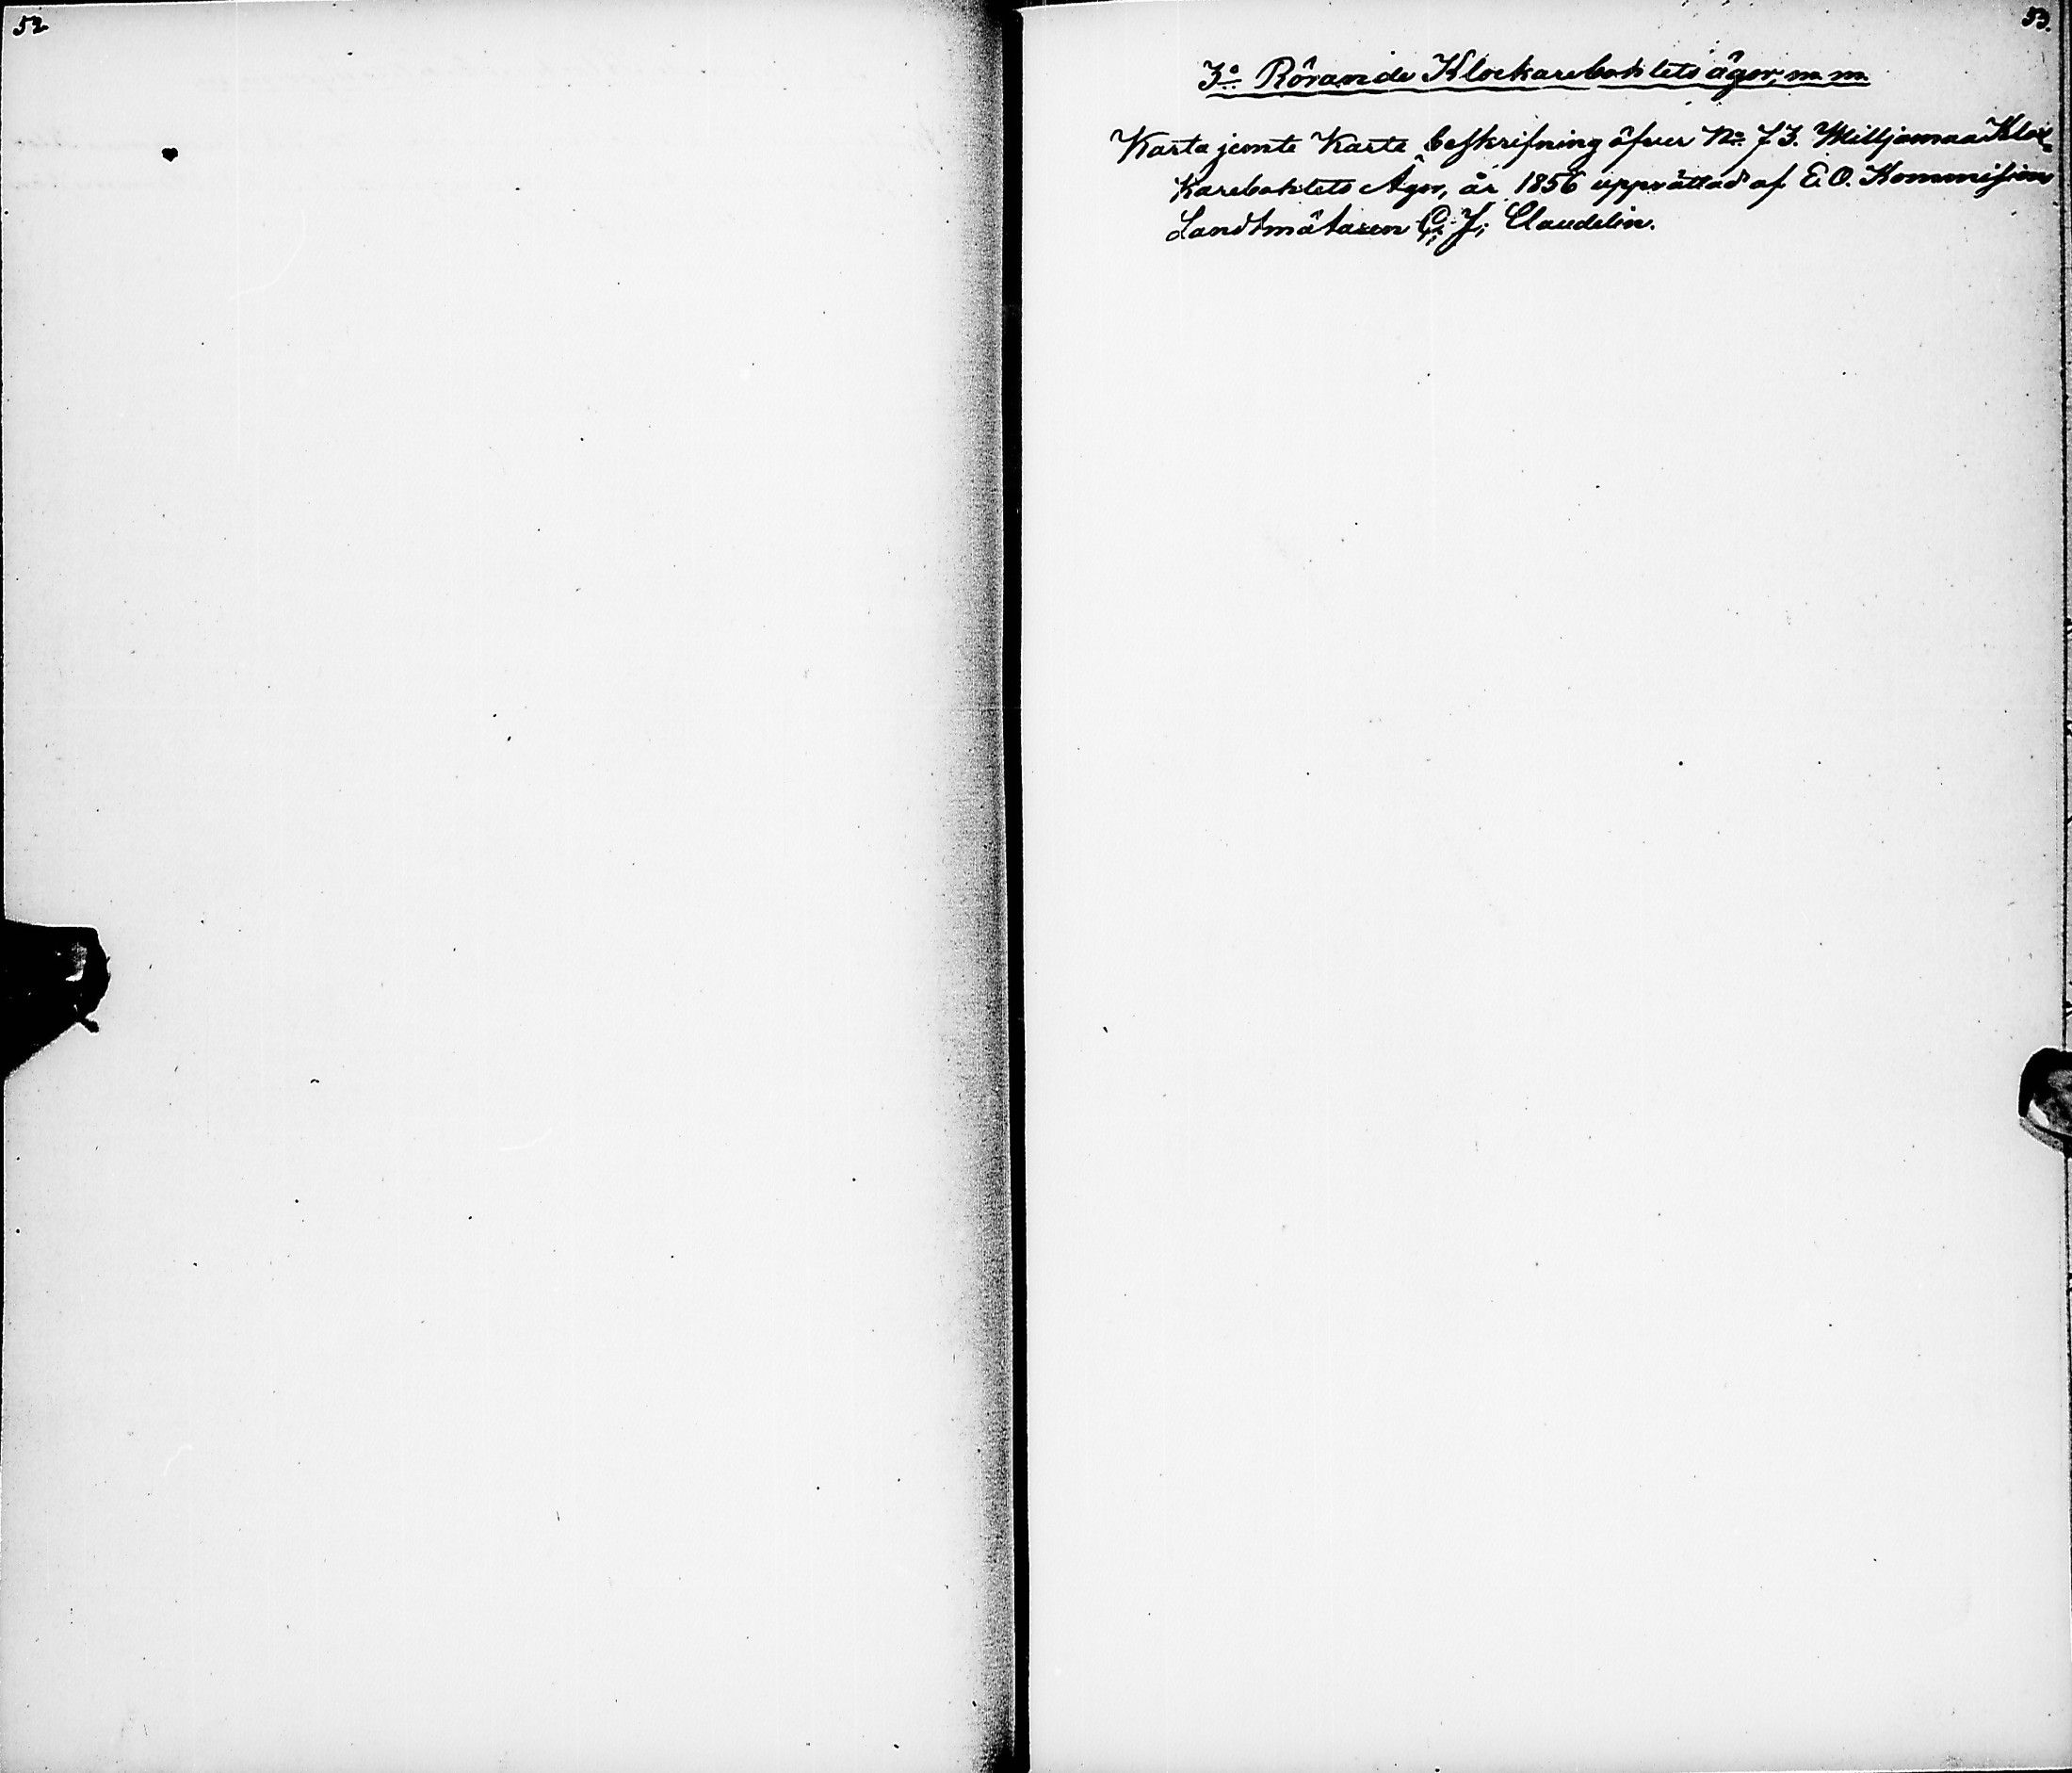 52
53.
3:o Rörande Klockarebohlets ägor, m m.
Karta jemte Karte beskrifning öfver No 73. Williamaa Kloc=
karebohlets Ägor, år 1856 upprättad af E.O. Kommissions
Landtmätaren C. J. Claudelin.